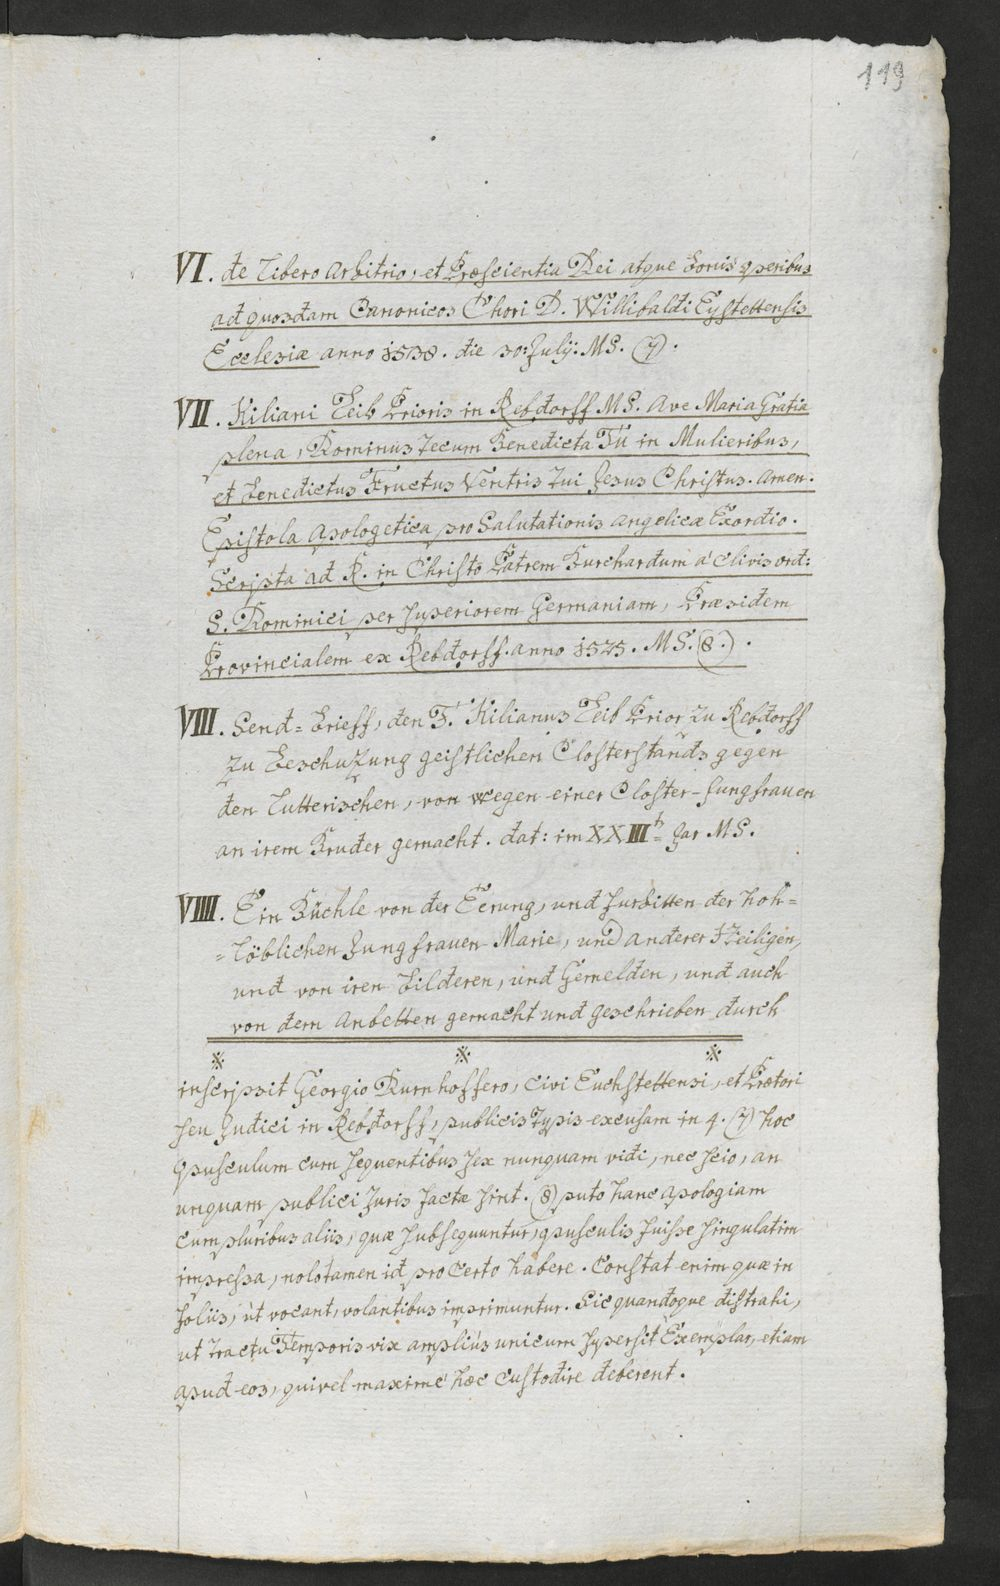 119
VI. de Libero Arbitrio, et Præscientia Dei atque bonis operibus
ad quosdam Canonicos Chori D. Willibaldi Eystettensis
Ecclesiæ anno 1538. die 30: July: MS. (7).
VII. Kiliani Leib Prioris in Rebdorff MS. Ave Maria Gratia
plena, Dominus Tecum Benedicta Tu in Mulieribus,
et benedictus Fructus Ventris Tui Jesus Christus. Amen:
Epistola Apologetica pro Salutationis Angelicæ Exordio.
Scripta ad R. in Christo Patrem Burchardum á Clivis ord:
S. Dominici per superiorem Germaniam, Præsidem
Provincialem ex Rebdorff. anno 1525. MS. (8.).
VIII. Send= brieff, den F. Kilianus Leib Prior zu Rebdorff
zu beschuzung geistlichen Closterstands gegen
den Lutterischen, von wegen einer Closter-Jungfrauen
an irem Bruder gemacht. dat: im XXIII.t Jar MS.
VIIII. Ein Büchle von der Eerung, und furbitten der hoh=
=löblichen Jungfrauen Marie, und anderer Heiligen,
und von iren bilderen, und Gemelden, und auch
von dem Anbetten gemacht und geschrieben durch
※ ※ ※
inscripsit Georgio Durnhoffero, civi Euchstettensi, et Prætori
seu Judici in Rebdorff, publicis Typis excusam in 4. (7) hoc
Opusculum cum sequentibus sex nunquam vidi, nec scio, an
unquam publici Juris factæ sint. (8) puto hanc apologiam
cum pluribus aliis, quæ subsequuntur, opusculis fuisse singulatim
impressa, nolo tamen id pro certo habere. Constat enim quæ in
foliis, út vocant, volantibus imprimuntur. Sic quandoque distrahi,
ut tractu Temporis vix ampliús unicum supersit Exemplar, etiam
apud eos, qui vel maximé hæc custodire deberent.